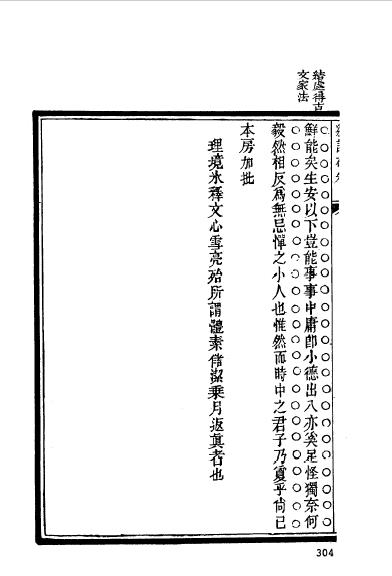 結處得古
文家法
鮮能矣生安以下豈能事事中庸卽小德出入亦奚足怪獨奈何
毅然相反爲無忌憚之小人也惟然而時中之君子乃夐乎尙已
本房加批
理境氷釋文心雪亮殆所謂體素儲潔乘月返眞者也
304